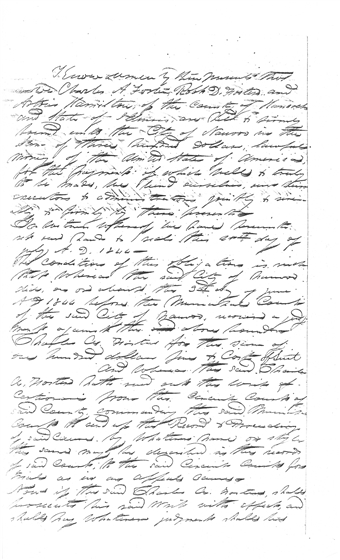 Know all men by these presents that
we Charles A. Foster Robt D. Foster and
of the County of Hancock
and State of Illinois are held & firmly
bound unto the City of Nauvoo in the
Sum of three hundred dollars, lawful
money of the United States of America
for the payment of which well & truly
to be made, we bind ourselves, our
executors & administrators jointly &
firmly by these presents
In witness whereof we have hereunto
set our hands & seals this day of
A. D. 1844
The condition of this obligation is such
that whereas the said City of Nauvoo
did, on or about the 3d day of June
AD 1844 before the Municipal Court
of the said City of Nauvoo, recover a
against the above bounden
Charles A. Foster for the sum of
one hundred dollars fine & Cost of Suit
And whereas the said Charles
A. Foster hath sued out the writ of
Certiorari from the Circuit Court of
said County commanding the said Municipal
Court to send up the Record & Proceeding
of said cause by whatever name or style
the same may be in the records
of said court, to the said Circuit Court for
trial as in an appeal cause
Now if the said Charles A. Foster, shall
prosecute his said Writ with effect, and
shall pay whatever judgment shall be